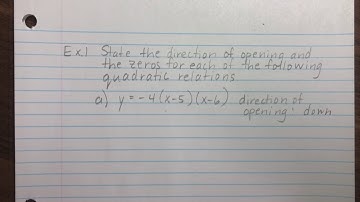 Ex.1 State the direction of opening and
the zeros for each of the following
quadratic relations.
a) y = -4(x-5)(x-6) direction of
opening: down